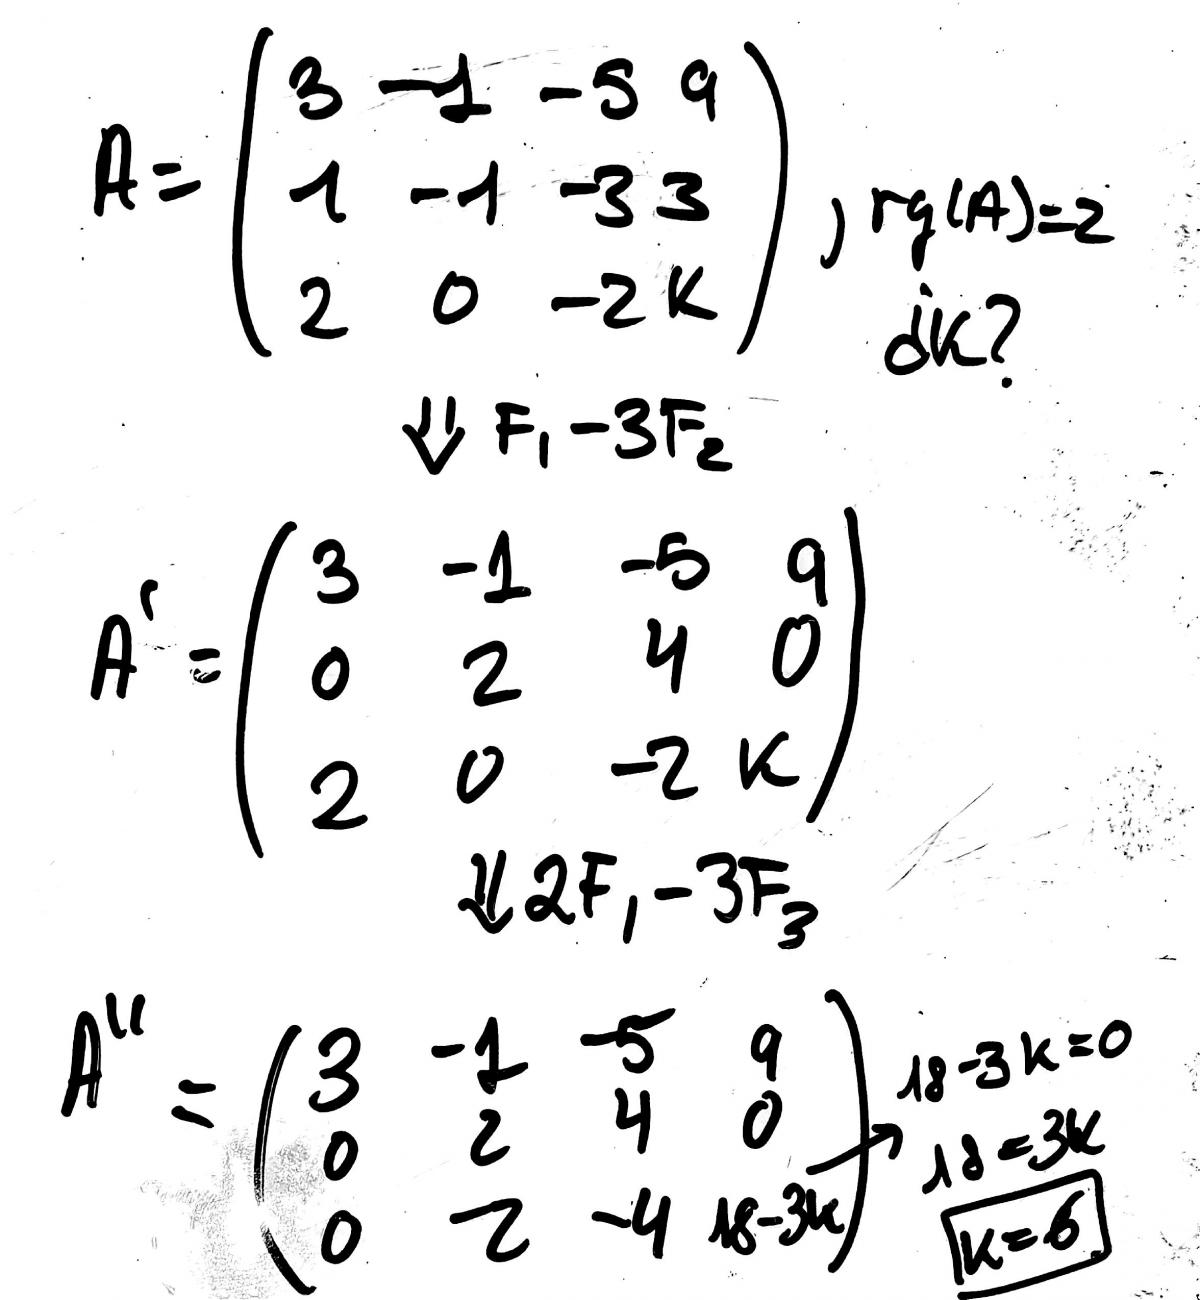 A = ( 3 -1 -5 9
1 -1 -3 3
2 0 -2 K ) , rg(A)=2
¿K?
⇓ F₁ -3F₂
A' = ( 3 -1 -5 9
0 2 4 0
2 0 -2 K )
⇓ 2F₁ -3F₃
A'' = ( 3 -1 -5 9
0 2 4 0
0 -2 -4 18-3K ) → 18-3K=0
18=3K
K=6